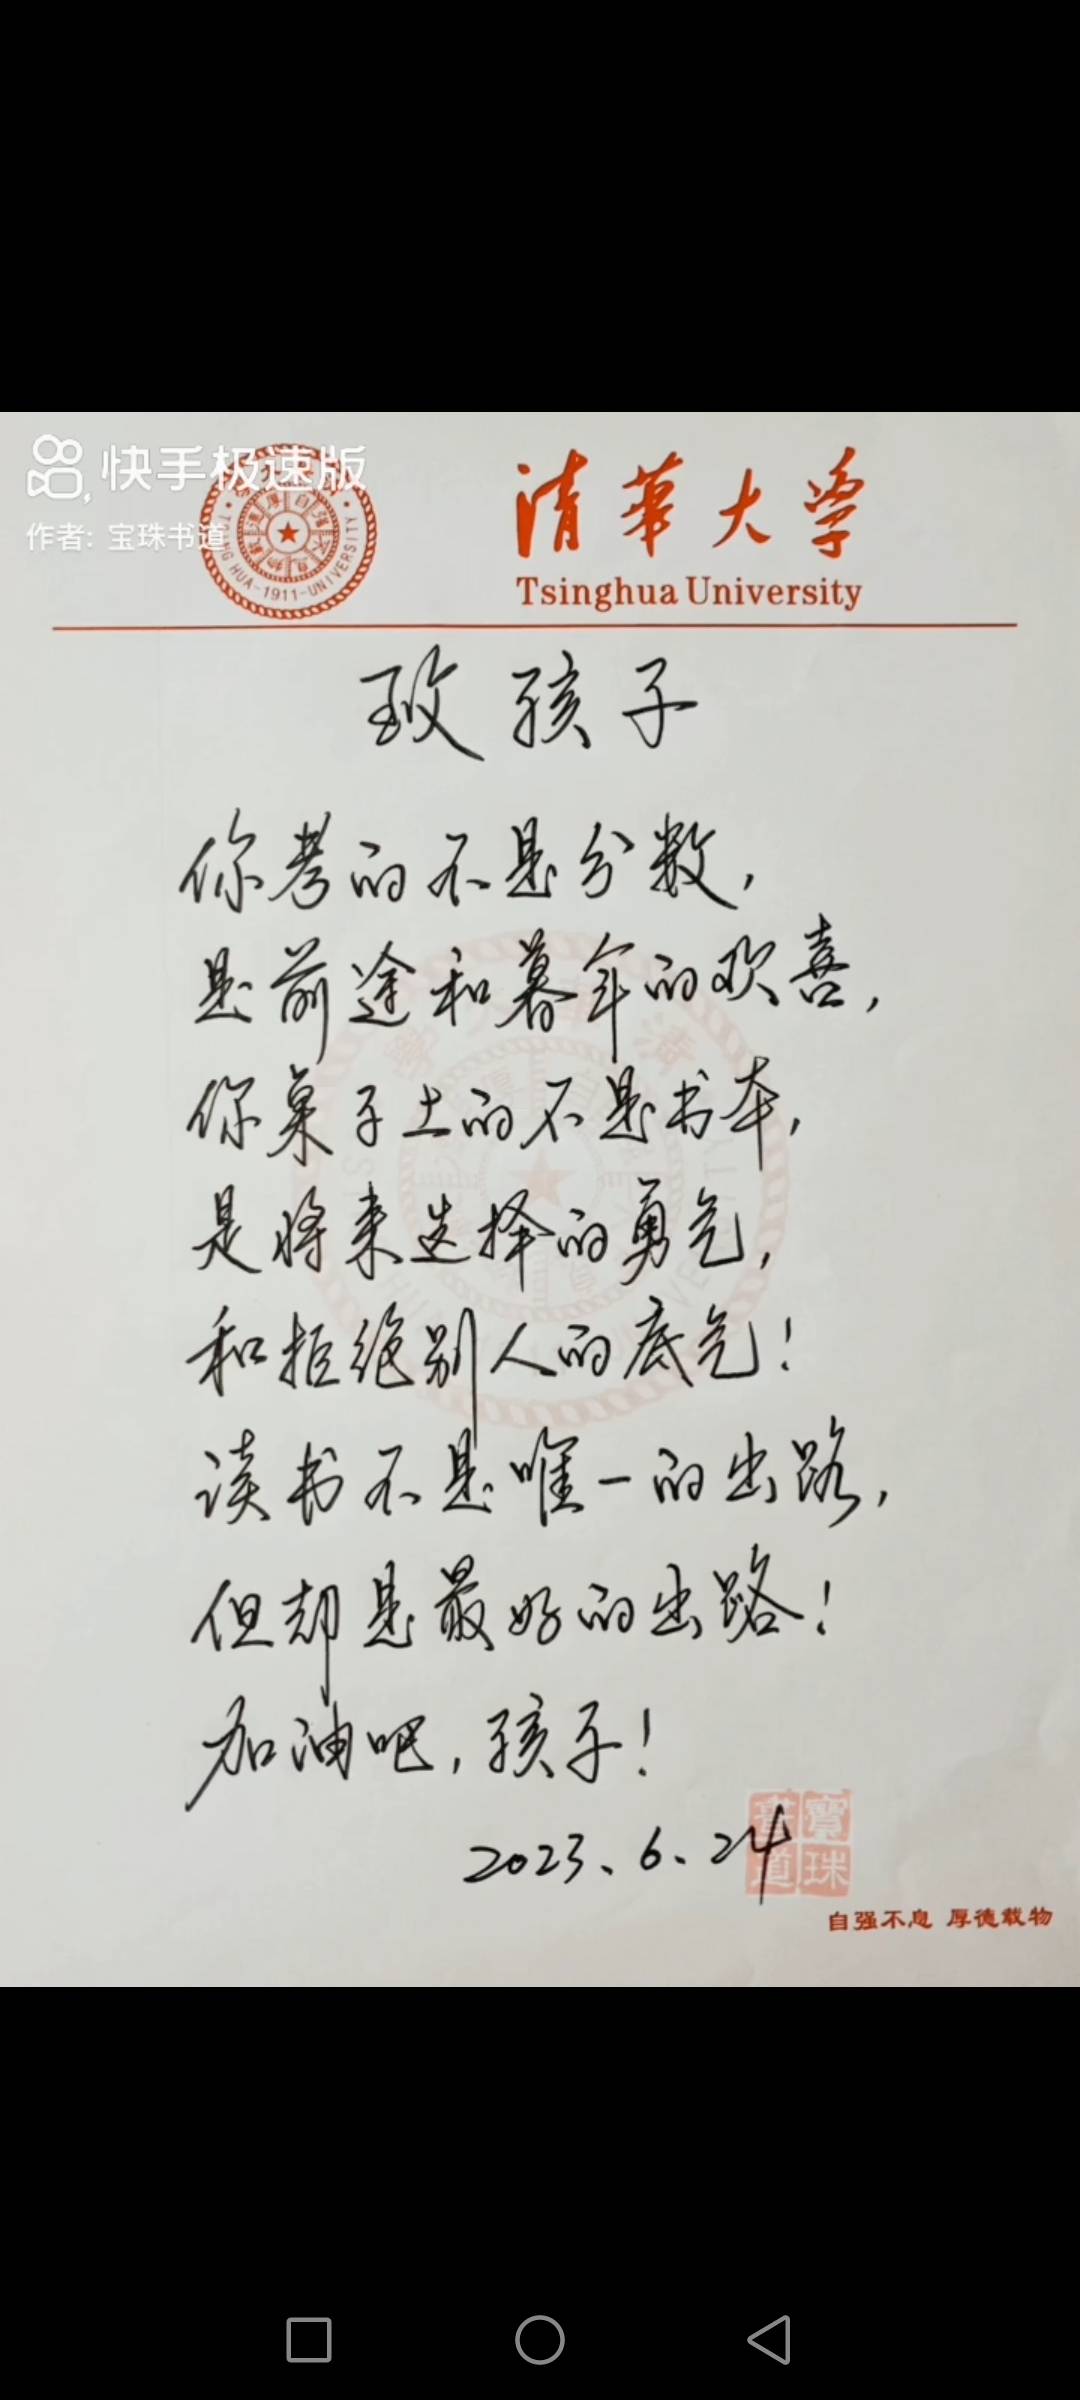 快手极速版
作者: 宝珠书道
清華大学
Tsinghua University
致孩子
你考的不是分数,
是前途和暮年的欢喜,
你桌子上的不是书本,
是将来选择的勇气,
和拒绝别人的底气!
读书不是唯一的出路,
但却是最好的出路!
加油吧,孩子!
2023、6、24
寶珠
書道
自强不息 厚德载物